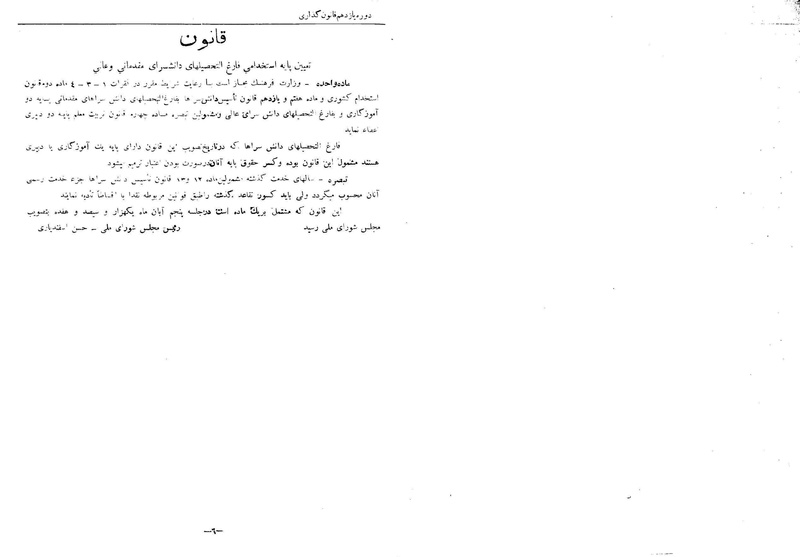 دوره یازدهم قانون گذاری
قانون
تعیین پایه استخدامی فارغ التحصیلهای دانشسرای مقدماتی وعالی
ماده واحده - وزارت فرهنك مجاز است با رعایت شرایط مقرر در فقرات ۱ - ۳ - ٤ ماده دوم قانون
استخدام کشوری و ماده هفتم و یازدهم قانون تأسیس دانش سر ها بفارغ التحصیلهای دانش سراهای مقدماتی پایه دو
آموزگاری و بفارغ التحصیلهای دانش سرای عالی ومشمولین تبصره ماده چهارم قانون تربیت معلم پایه دو دبیری
اعطاء نماید
فارغ التحصیلهای دانش سراها که درتاریخ تصویب این قانون دارای پایه یك آموزگاری یا دبیری
هستند مشمول این قانون بوده وکسر حقوق پایه آنان درصورت بودن اعتبار ترمیم میشود
تبصره - سالهای خدمت گذشته مشمولین ماده ۱۲ و ۱۳ قانون تأسیس دانش سراها جزء خدمت رسمی
آنان محسوب میگردد ولی باید کسور تقاعد گذشته راطبق قوانین مربوطه نقداً یا اقساطاً تأدیه نمایند
این قانون که مشتمل بریك ماده است درجلسه پنجم آبان ماه یکهزار و سیصد و هفده بتصویب
مجلس شورای ملی رسید
رئیس مجلس شورای ملی - حسن اسفندیاری
-٦-